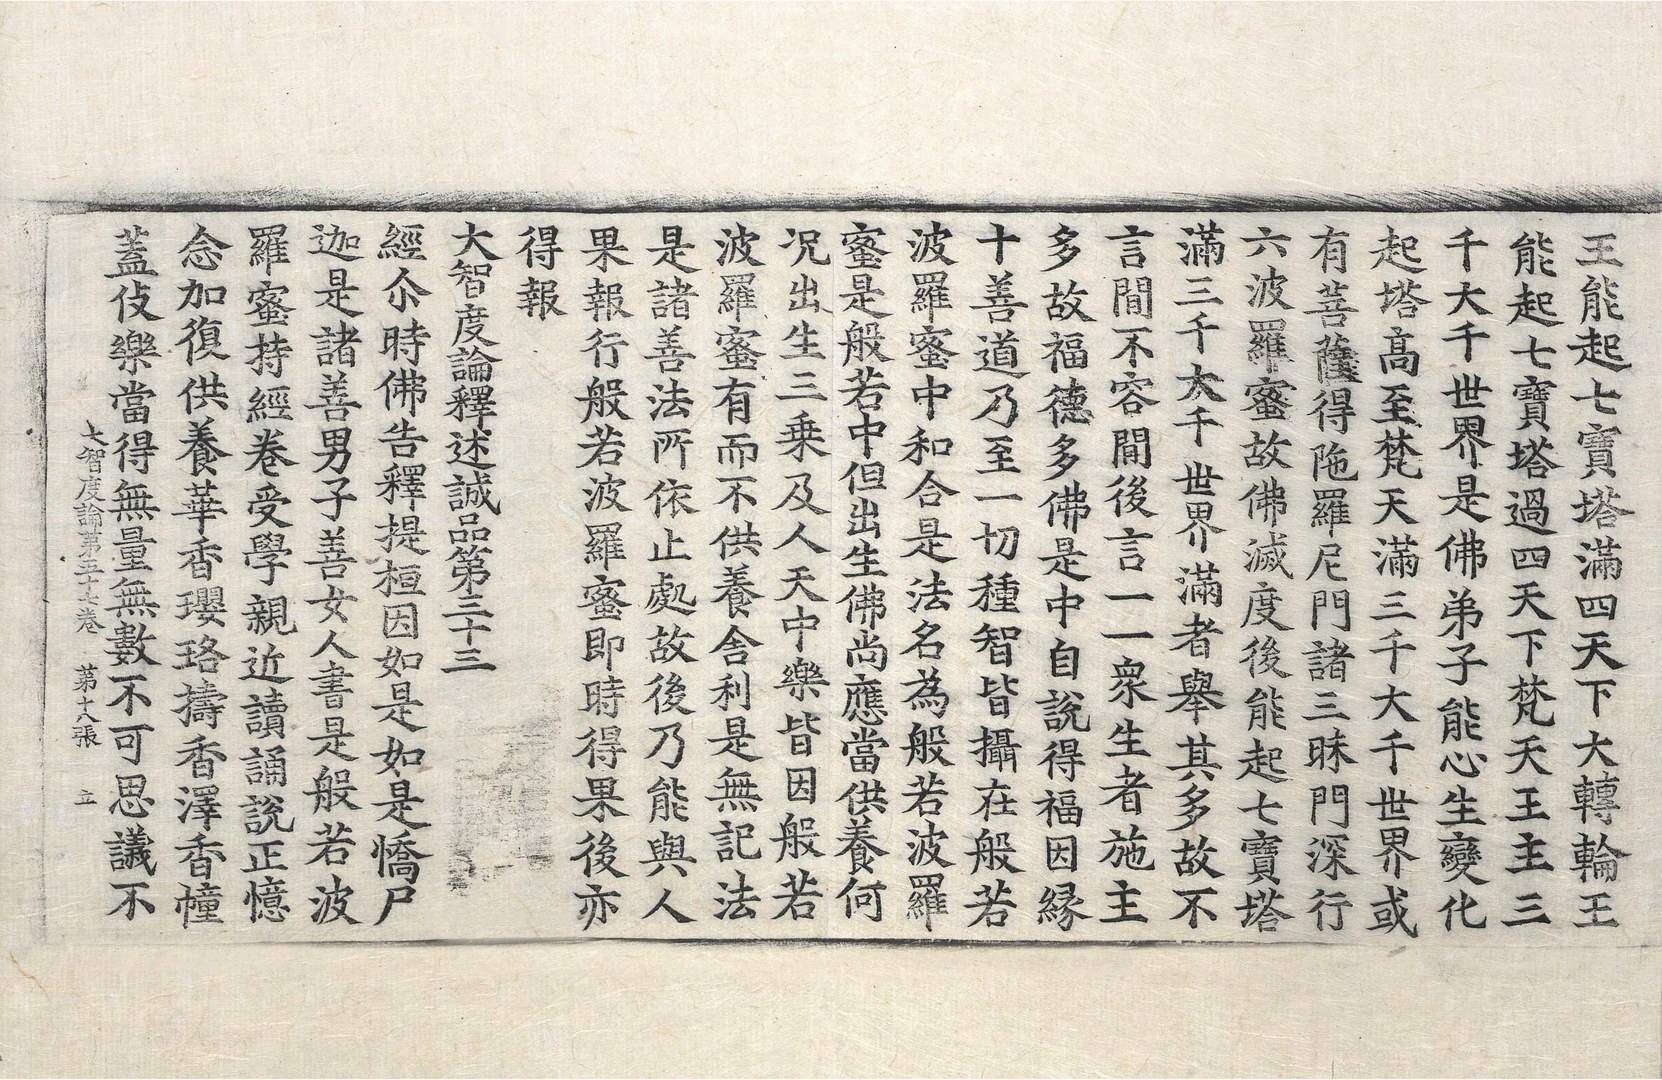 王能起七寶塔滿四天下大轉輪王
能起七寶塔過四天下梵天王主三
千大千世界是佛弟子能心生變化
起塔高至梵天滿三千大千世界或
有菩薩得陁羅尼門諸三昧門深行
六波羅蜜故佛滅度後能起七寶塔
滿三千大千世界滿者舉其多故不
言閒不容閒後言一一衆生者施主
多故福德多佛是中自說得福因緣
十善道乃至一切種智皆攝在般若
波羅蜜中和合是法名為般若波羅
蜜是般若中但出生佛尚應當供養何
况出生三乗及人天中樂皆因般若
波羅蜜有而不供養舍利是無記法
是諸善法所依止處故後乃能與人
果報行般若波羅蜜即時得果後亦
得報
大智度論釋述誠品第三十三
經尒時佛告釋提桓因如是如是憍尸
迦是諸善男子善女人書是般若波
羅蜜持經卷受學親近讀誦說正憶
念加復供養華香瓔珞擣香澤香幢
蓋伎樂當得無量無數不可思議不
大智度論第五十七卷 第十八張 立